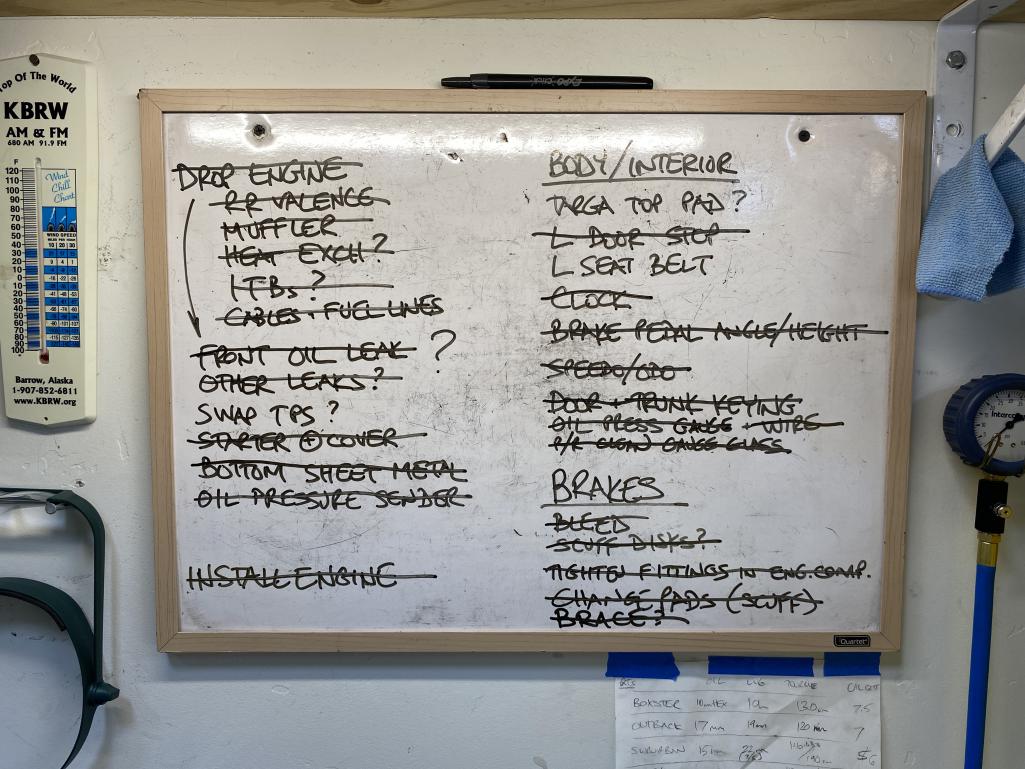 Top Of The World
KBRW
AM & FM
680 AM 91.9 FM
F
Wind
Chill
Chart
WIND SPEED
10 20 30
120
110
100
90
80
70
60
50
40
30
20
10
0
10
20
30
40
50
60
70
80
90
100
Barrow, Alaska
1-907-852-6811
www.KBRW.org
EXPO Click
DROP ENGINE
RR VALENCE
MUFFLER
HEAT EXCH?
ITBs?
CABLES + FUEL LINES
FRONT OIL LEAK ?
OTHER LEAKS?
SWAP TPS ?
STARTER + COVER
BOTTOM SHEET METAL
OIL PRESSURE SENDER
INSTALL ENGINE
BODY/INTERIOR
TARGA TOP PAD?
L DOOR STOP
L SEAT BELT
CLOCK
BRAKE PEDAL ANGLE/HEIGHT
SPEEDO/ODO
DOOR + TRUNK KEYING
OIL PRESS GAUGE + WIRE
P/R CLEAN GAUGE GLASS
BRAKES
BLEED
SCUFF DISKS?
TIGHTEN FITTINGS IN ENG. COMP.
CHANGE PADS (SCUFF)
BRACE?
Quartet
OIL LUG TORQUE
BOXSTER 10mm HEX 19m 130nm 7.5
OUTBACK 17mm 19mm 120nm 7
SUBURBAN 15mm
Interco